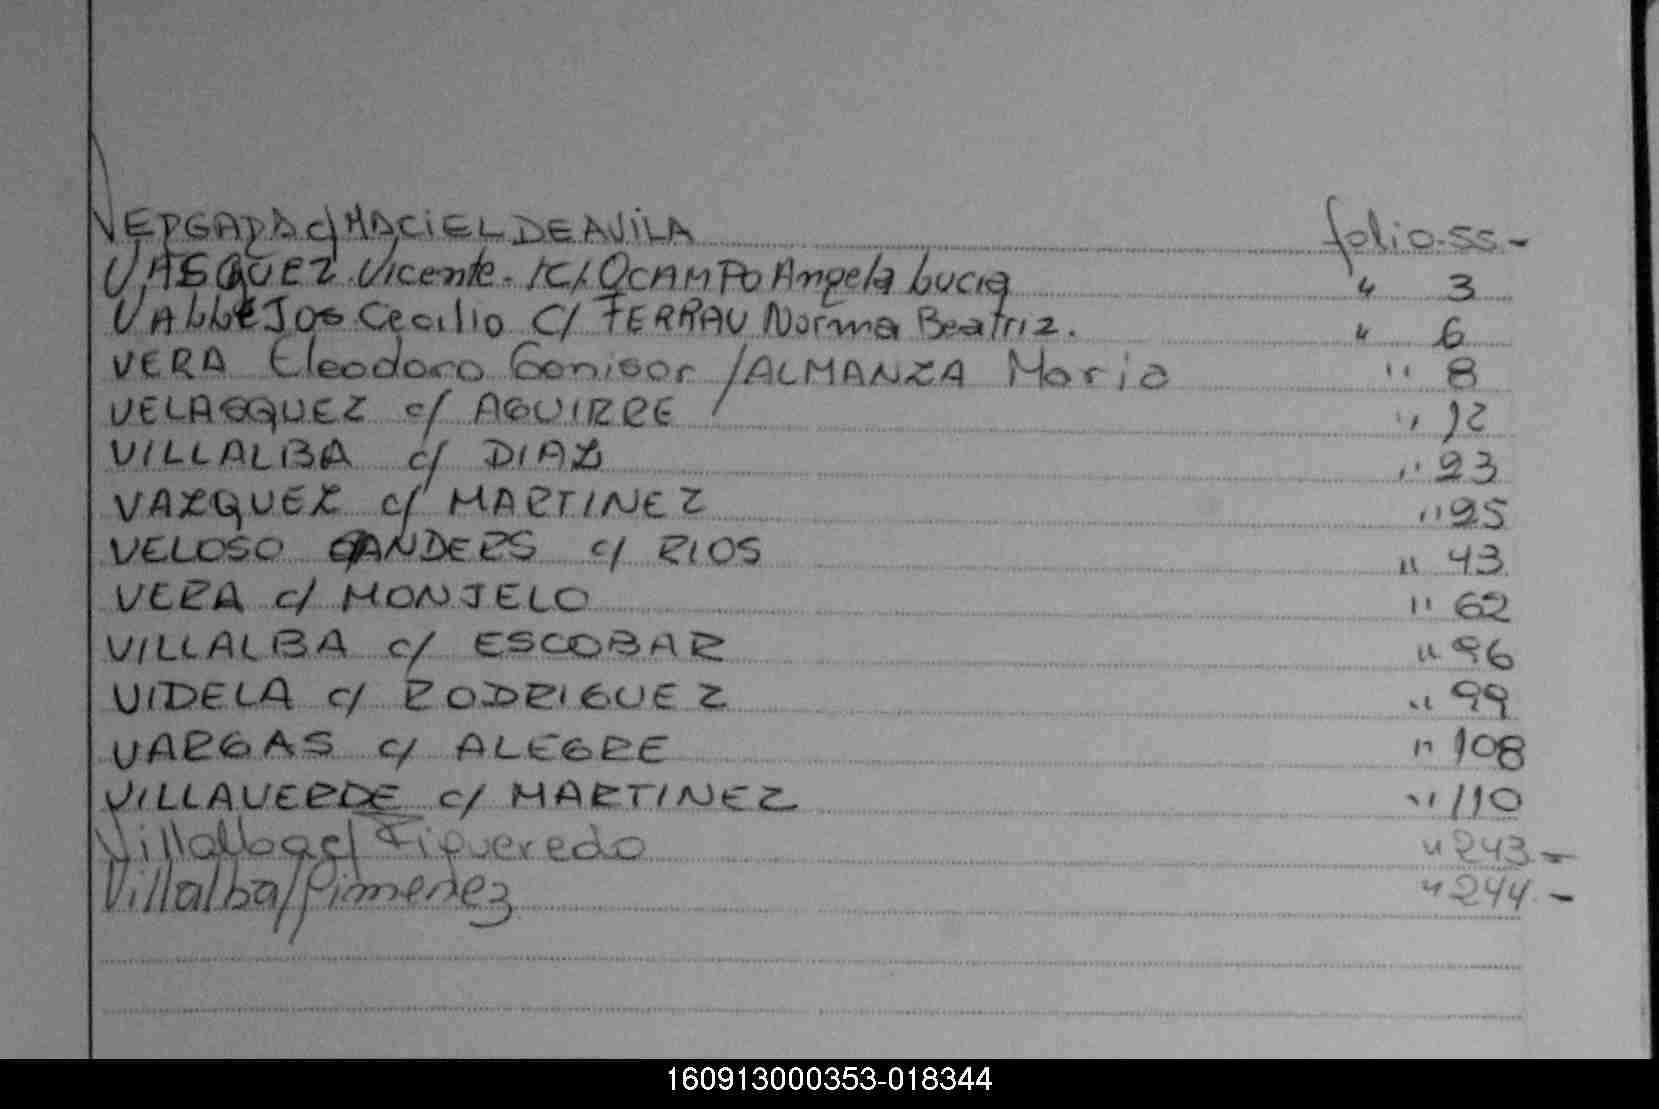 VERGARA c/ MACIEL DE AVILA folio 55-
VASQUEZ Vicente - C/ OCAMPO Angela Lucia " 3
VALLEJOS Cecilio C/ FERRAU Norma Beatriz. " 6
VERA Eleodoro /ALMANZA Maria " 8
VELASQUEZ c/ AGUIRRE " 12
VILLALBA c/ DIAZ " 23
VAZQUEZ c/ MARTINEZ " 25
VELOSO SANDERS c/ RIOS " 43
VERA c/ MONJELO " 62
VILLALBA c/ ESCOBAR " 96
VIDELA c/ RODRIGUEZ " 99
VARGAS c/ ALEGRE " 108
VILLAVERDE c/ MARTINEZ " 110
Villalba c/ Figueredo " 243.-
Villalba/Gimenez " 244.-
160913000353-018344